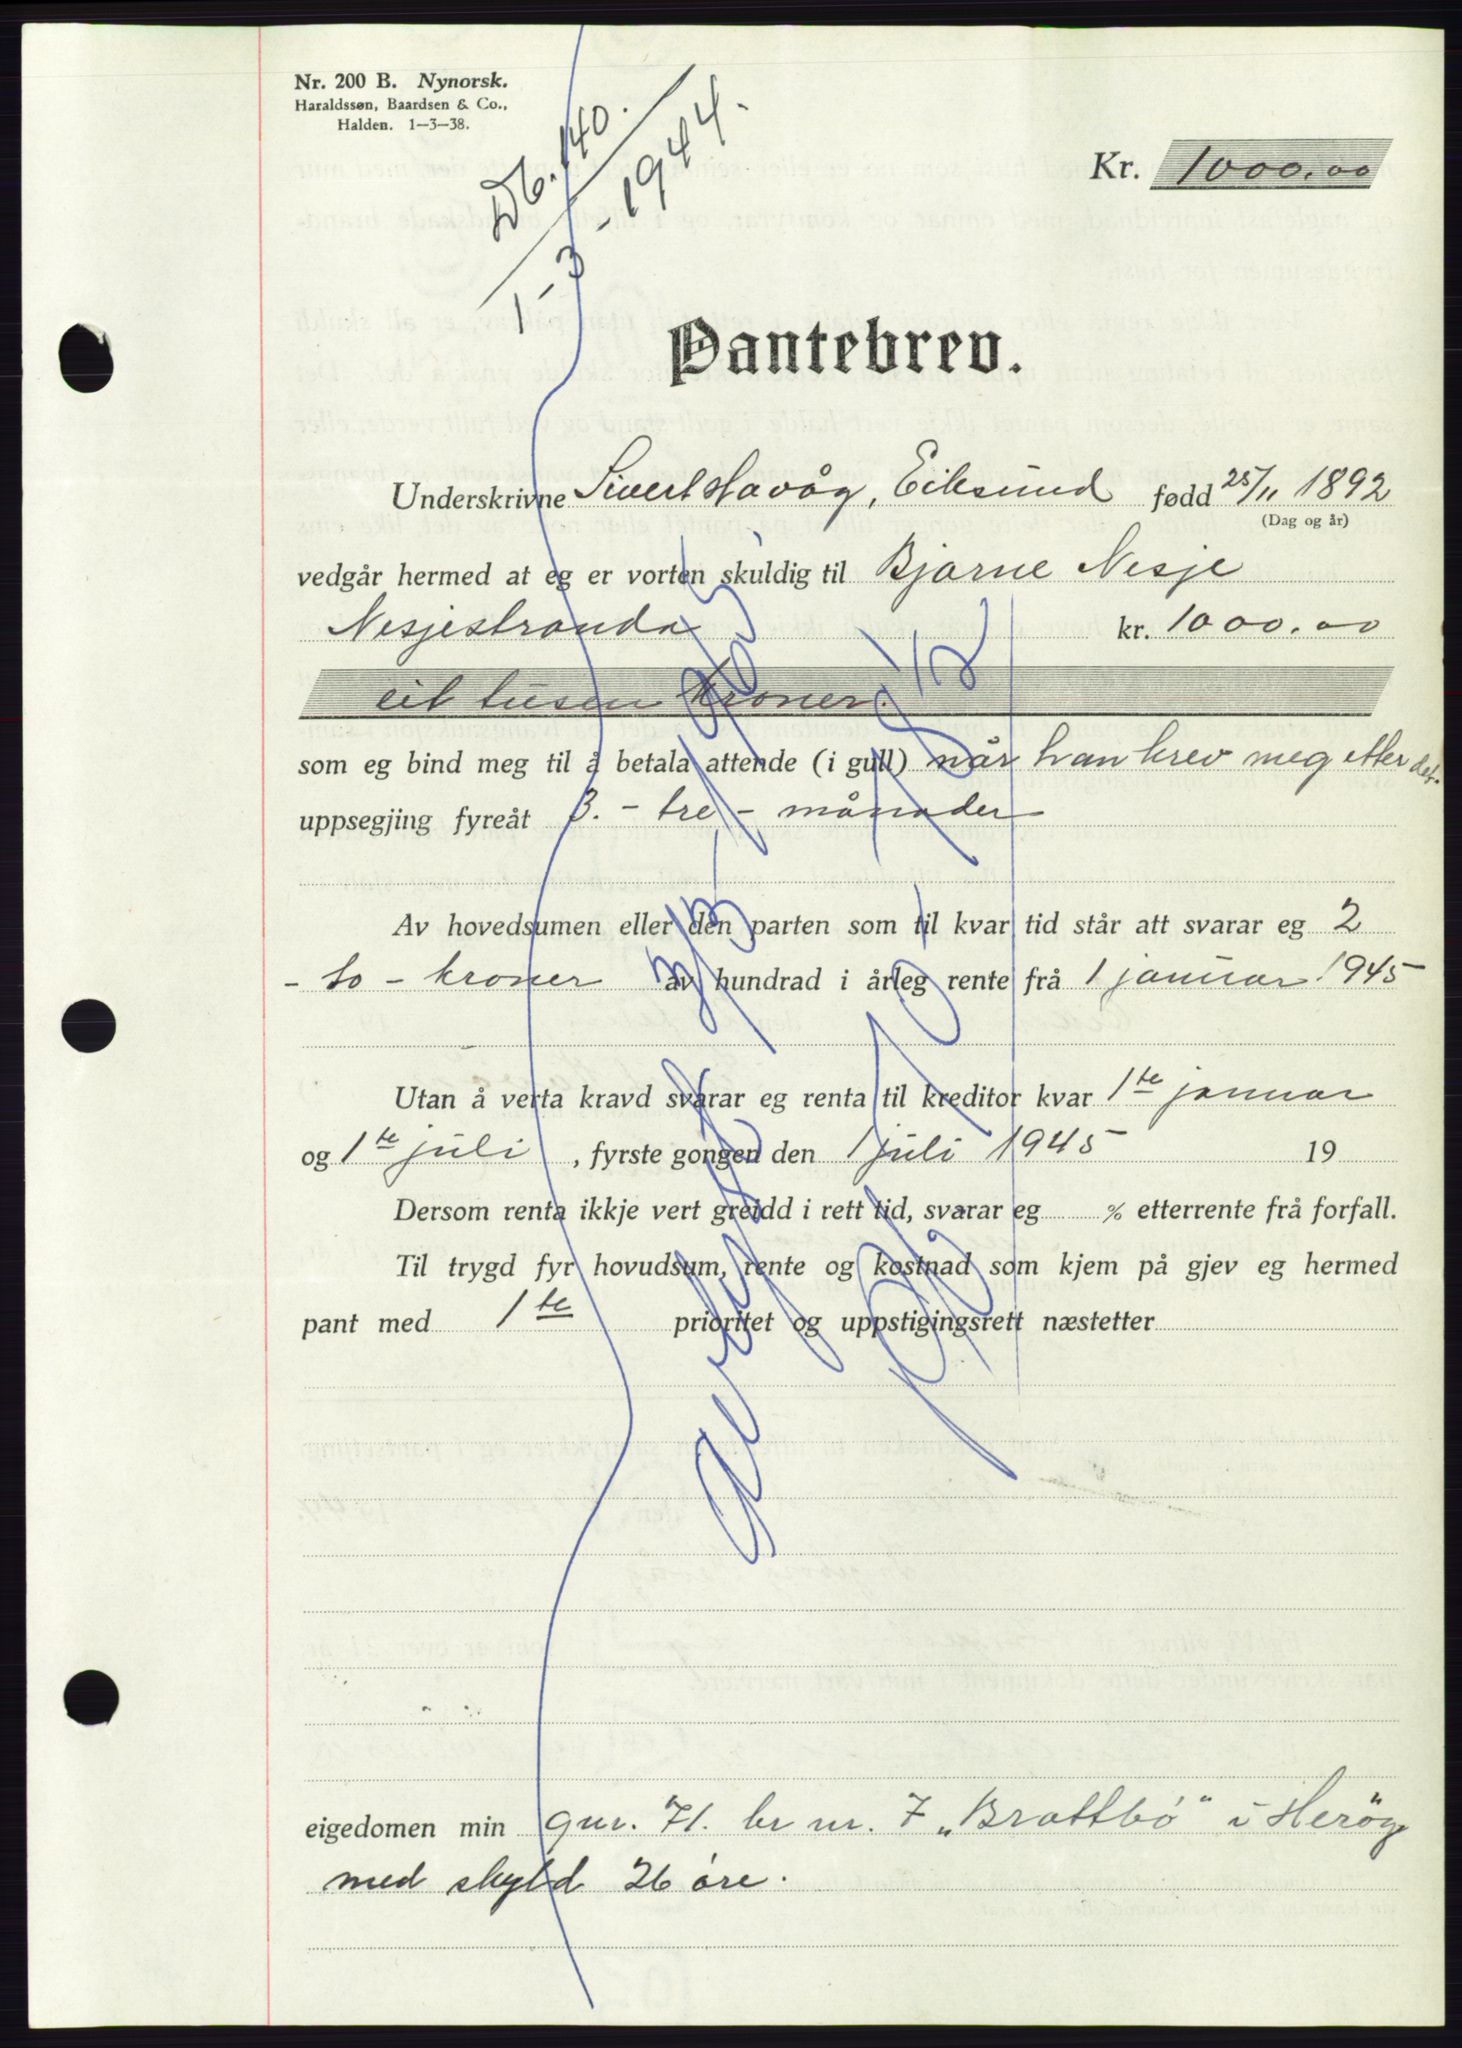 Nr. 200 B. Nynorsk.
Haraldssøn, Baardsen & Co.,
Halden. 1—3—38.
Db. 140.
1 - 3 - 1944.
Kr. 1000.00
Pantebrev.
Underskrivne Sivert Havåg, Eiksund fødd 25/11 1892
(Dag og år)
vedgår hermed at eg er vorten skuldig til Bjarne Nesje
Nesjestranda kr. 1000.00
eit tusen kroner.
som eg bind meg til å betala attende (i gull) når han krev meg etter det.
uppsegjing fyreåt 3. - tre - månader
Av hovedsumen eller den parten som til kvar tid står att svarar eg 2
- to - kroner av hundrad i årleg rente frå 1 januar 1945
Utan å verta kravd svarar eg renta til kreditor kvar 1te januar
og 1te juli , fyrste gongen den 1 juli 1945 19
Dersom renta ikkje vert greidd i rett tid, svarar eg % etterrente frå forfall.
Til trygd fyr hovudsum, rente og kostnad som kjem på gjev eg hermed
pant med 1te prioritet og uppstigingsrett næstetter
eigedomen min gnr. 71. br nr. 7 „Brattbö" i Heröy
med skyld 26 öre.
avlyst